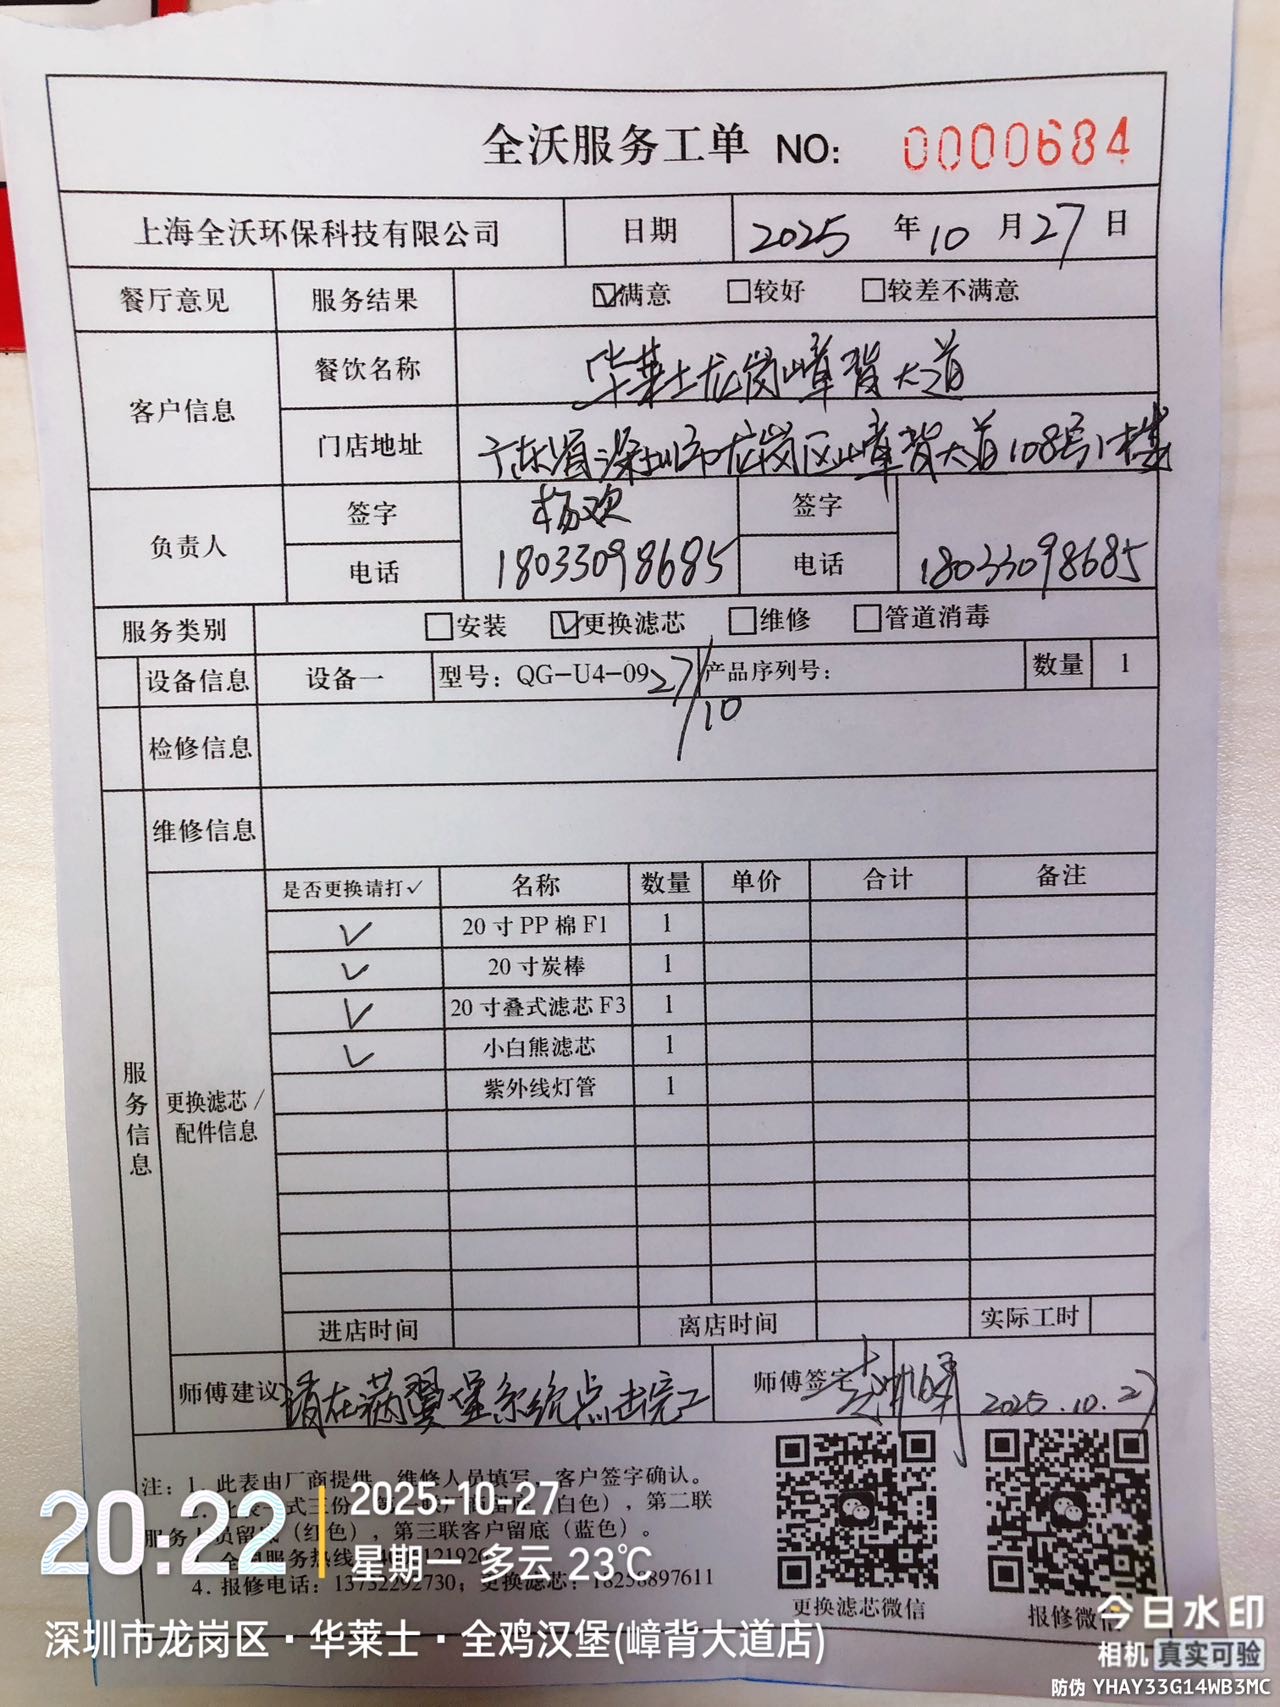 全沃服务工单 NO: 0000684
上海全沃环保科技有限公司 日期 2025 年 10 月 27 日
餐厅意见 服务结果 ☑满意 □较好 □较差不满意
客户信息 餐饮名称 华莱士龙岗嶂背大道
门店地址 广东省深圳市龙岗区嶂背大道108号1楼
负责人 签字 杨欢 签字
电话 18033098685 电话 18033098685
服务类别 □安装 ☑更换滤芯 □维修 □管道消毒
设备信息 设备一 型号：QG-U4-09 27/10 产品序列号： 数量 1
检修信息
维修信息
服务信息
更换滤芯/配件信息
是否更换请打✓ 名称 数量 单价 合计 备注
✓ 20寸PP棉F1 1
✓ 20寸炭棒 1
✓ 20寸叠式滤芯F3 1
✓ 小白熊滤芯 1
紫外线灯管 1
进店时间 离店时间 实际工时
师傅建议 请在满翼堡系统点击完工 师傅签字 2025.10.27
注：1. 此表由厂商提供，维修人员填写，客户签字确认。
（白色），第二联
服务人员留底（红色），第三联客户留底（蓝色）。
4. 报修电话：13732292730；更换滤芯：18258897611
更换滤芯微信 报修微信
20:22
2025-10-27
星期一 多云 23℃
深圳市龙岗区·华莱士·全鸡汉堡(嶂背大道店)
今日水印
相机 真实可验
防伪 YHAY33G14WB3MC